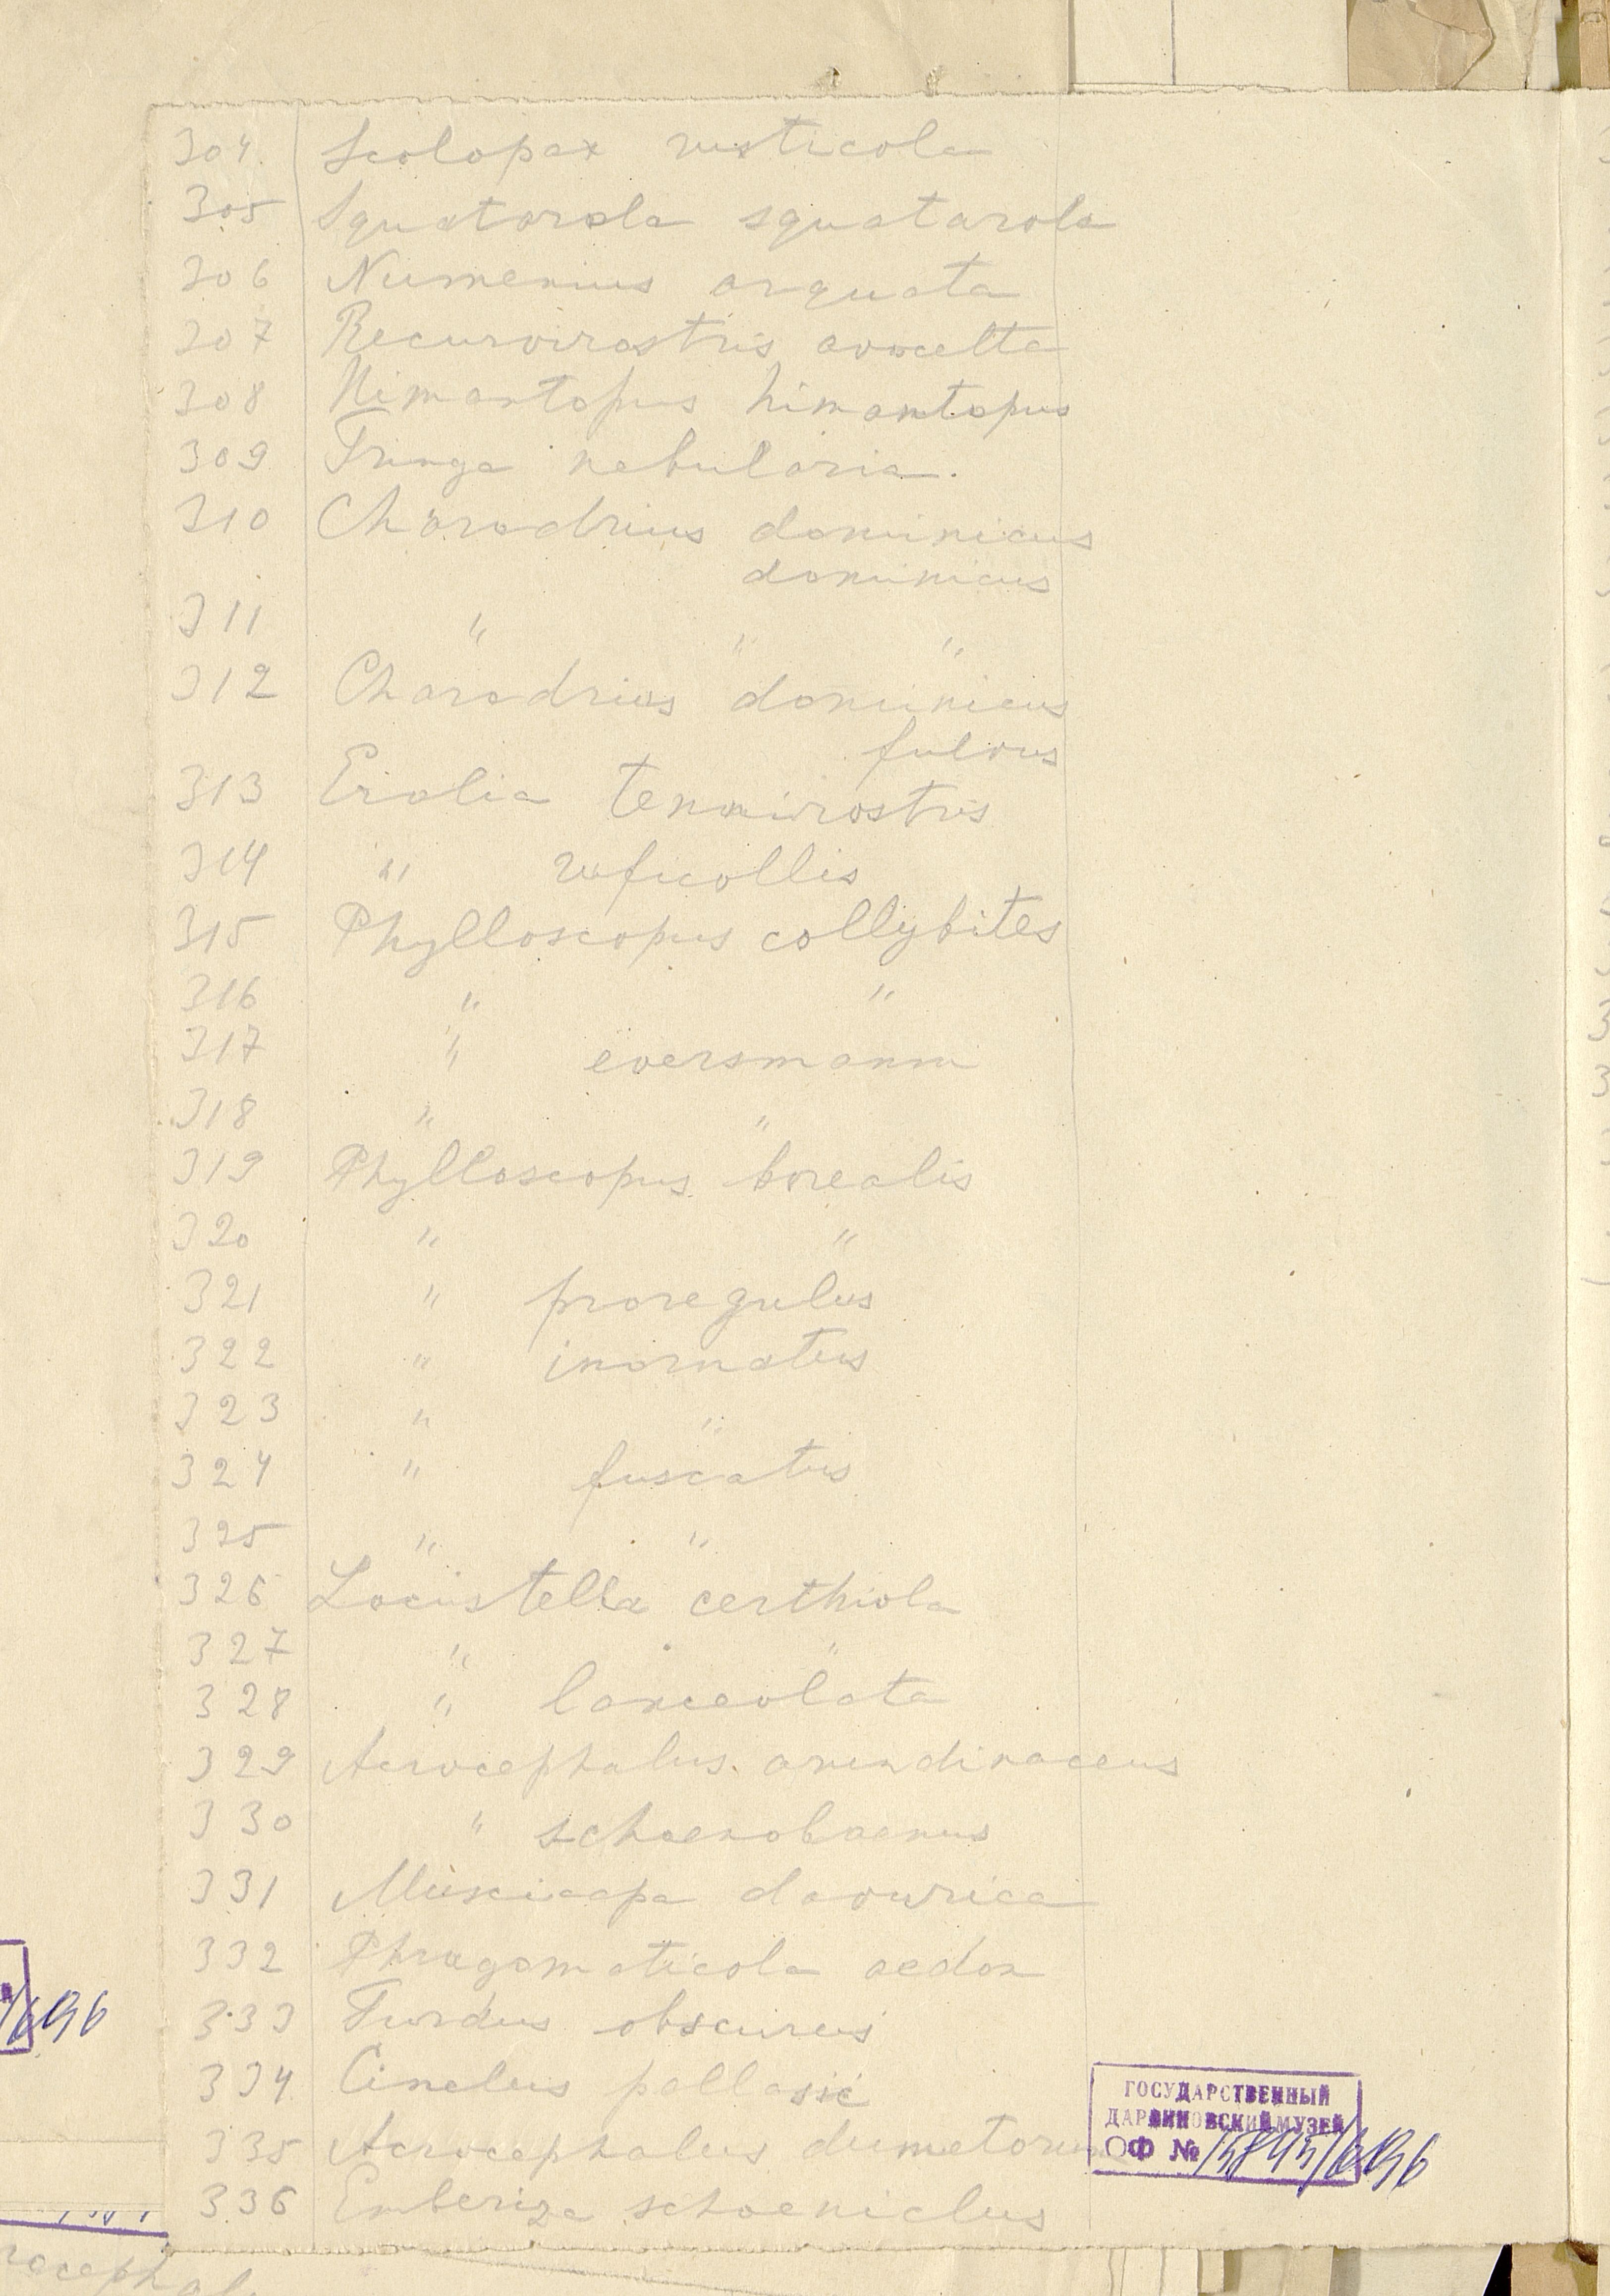 304 Scolopax rusticola
305 Squatarola squatarola
306 Numenius arquata
307 Recurvirostris avocetta
308 Himantopus himantopus
309 Tringa nebularia.
310 Charadrius dominicus
dominicus
311 " " "
312 Charadrius dominicus
fulvus
313 Erolia tenuirostris
314 " ruficollis
315 Phylloscopus collybites
316 " "
317 " eversmanni
318 " "
319 Phylloscopus borealis
320 " "
321 " proregulus
322 " inornatus
323 " "
324 " fuscatus
325 " "
326 Locustella certhiola
327 " "
328 " lanceolata
329 Acrocephalus arundinaceus
330 " schoenobaenus
331 Muscicapa davurica
332 Phragamaticola aedon
333 Turdus obscurus
334 Cinclus pallasii
335 Acrocephalus dumetorum
336 Emberiza schoeniclus
ГОСУДАРСТВЕННЫЙ
ДАРВИНОВСКИЙ МУЗЕЙ
ОФ №